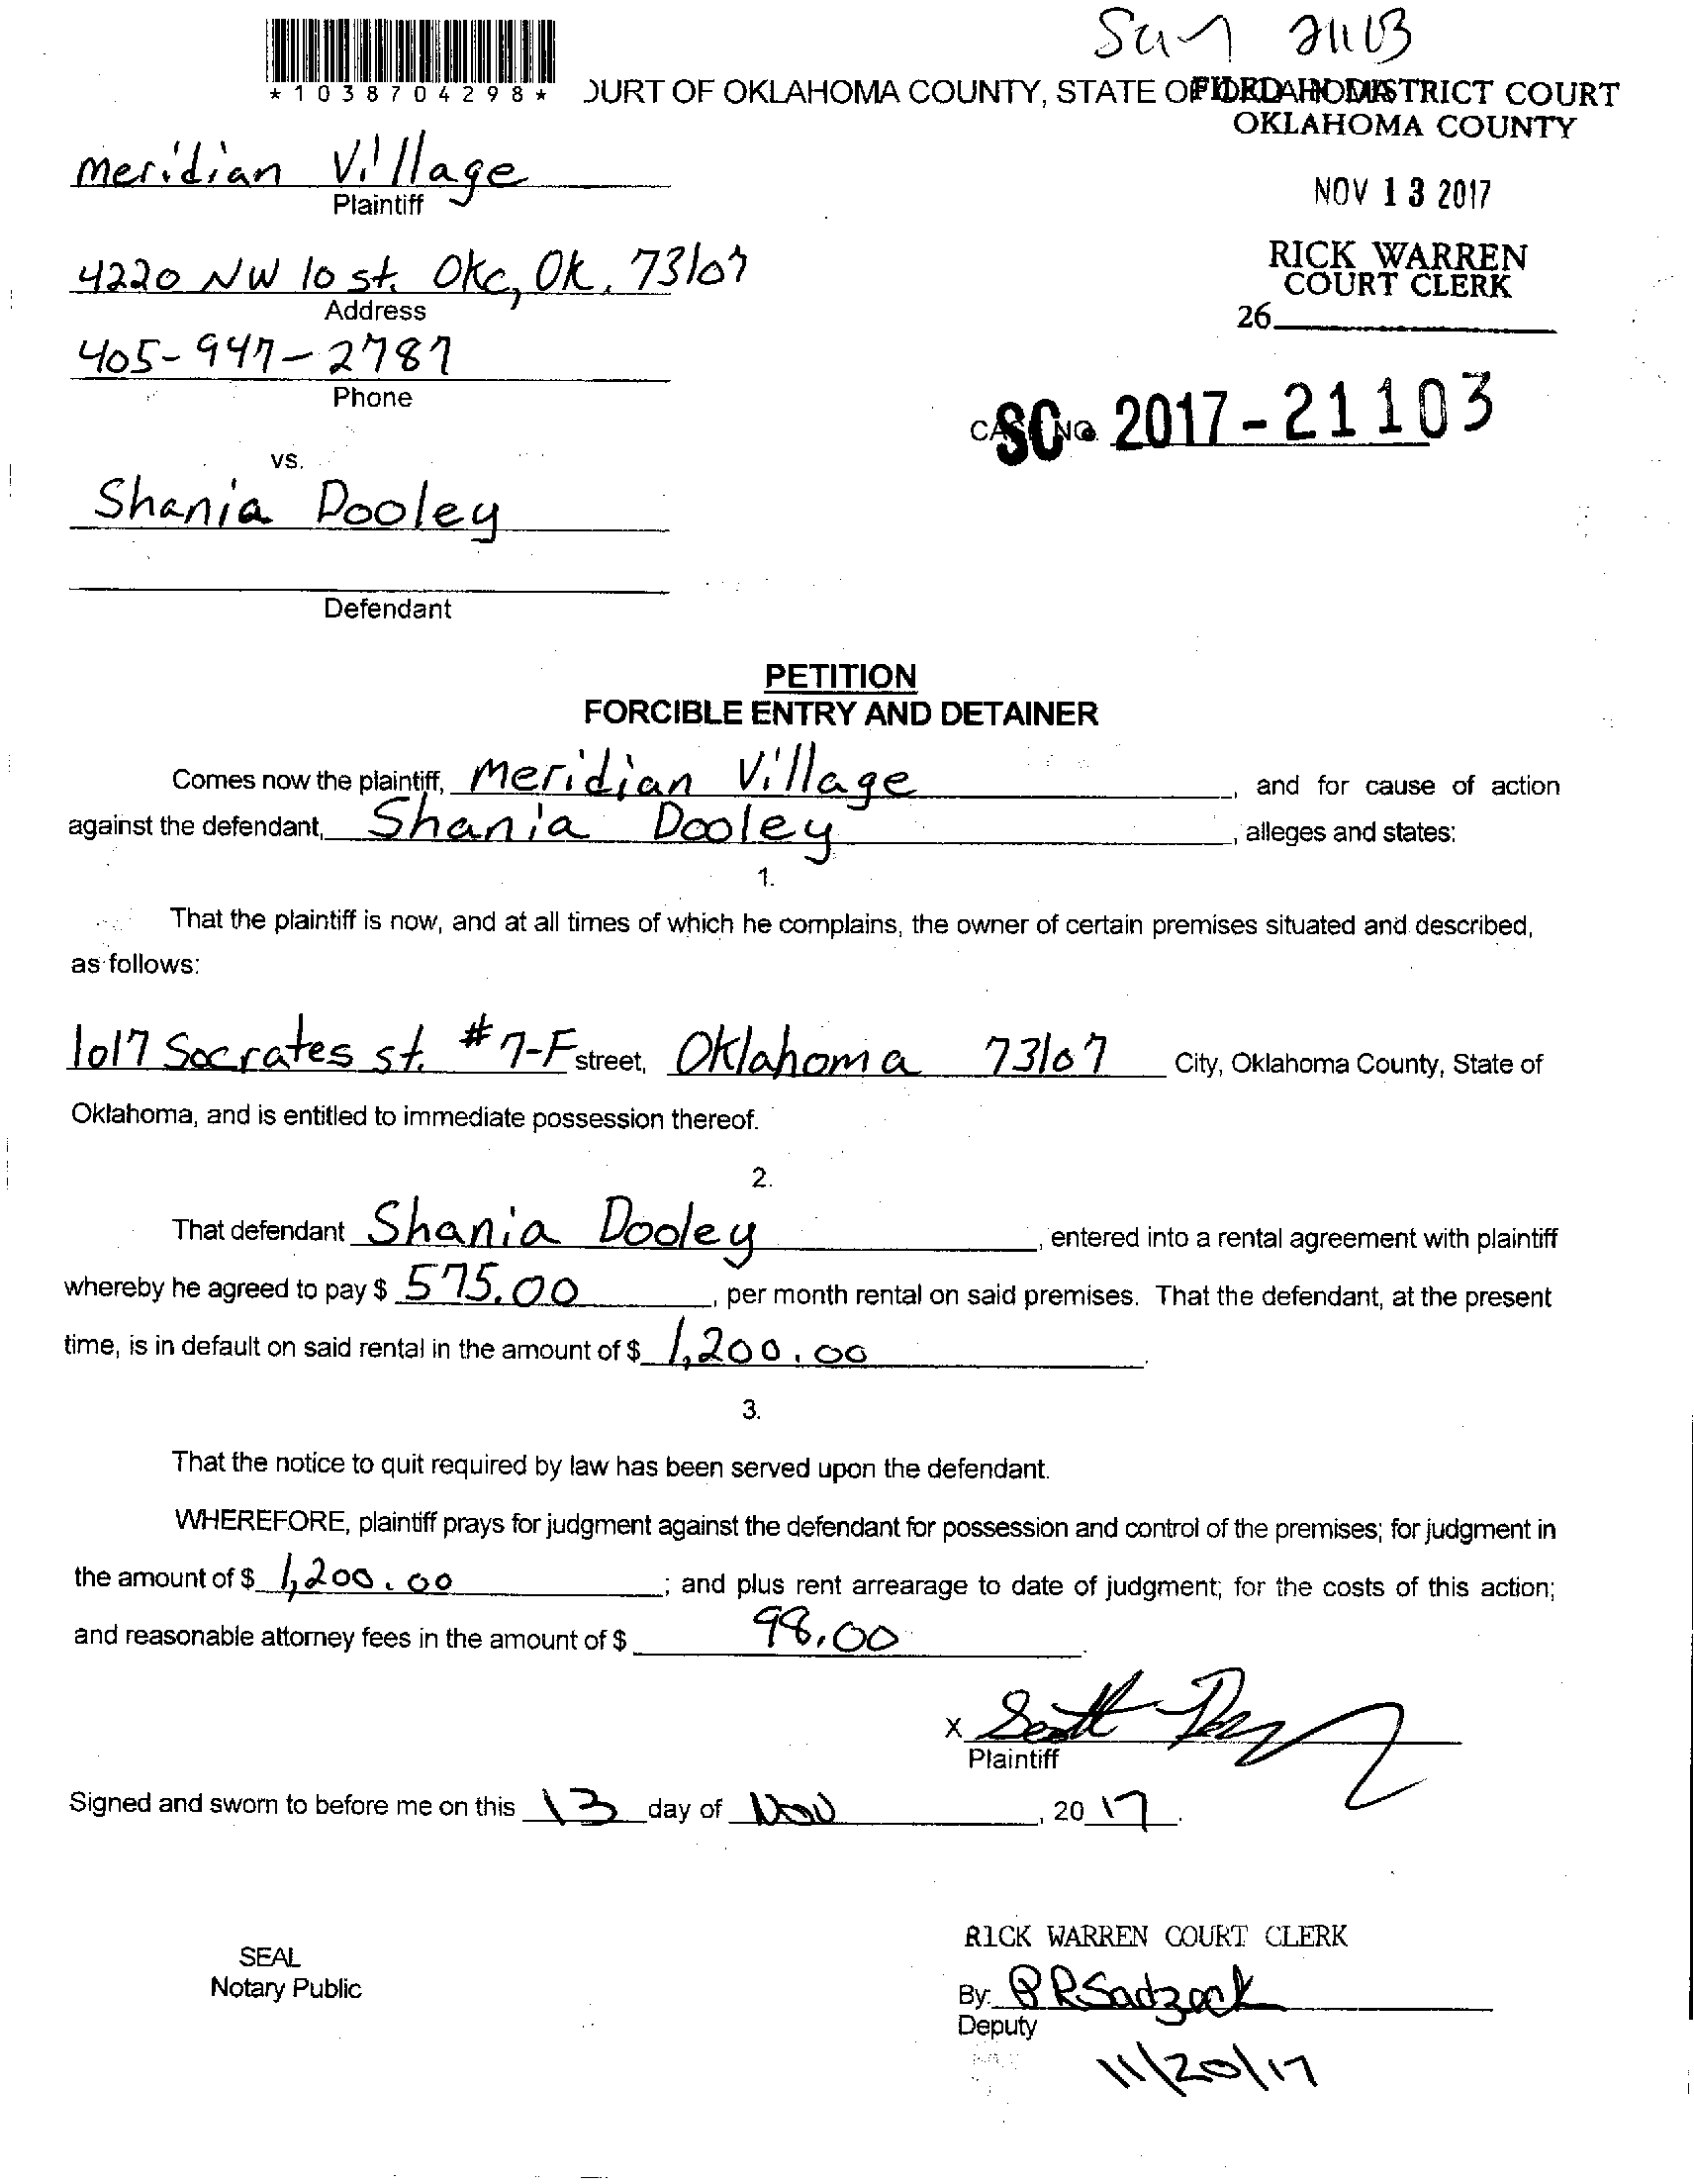 21103
*1038704298*
OURT OF OKLAHOMA COUNTY, STATE OF OKLAHOMA
FILED IN DISTRICT COURT
OKLAHOMA COUNTY
Meridian Village
Plaintiff
NOV 13 2017
4220 NW 10 st. Okc, Ok. 73107
Address
RICK WARREN
COURT CLERK
26
405-947-2787
Phone
CASE NO. SC 2017-21103
vs.
Shania Dooley
Defendant
PETITION
FORCIBLE ENTRY AND DETAINER
Comes now the plaintiff, Meridian Village, and for cause of action
against the defendant, Shania Dooley, alleges and states:
1.
That the plaintiff is now, and at all times of which he complains, the owner of certain premises situated and described,
as follows:
1017 Socrates st. #7-F street, Oklahoma 73107 City, Oklahoma County, State of
Oklahoma, and is entitled to immediate possession thereof.
2.
That defendant Shania Dooley, entered into a rental agreement with plaintiff
whereby he agreed to pay $ 575.00, per month rental on said premises. That the defendant, at the present
time, is in default on said rental in the amount of $ 1,200.00.
3.
That the notice to quit required by law has been served upon the defendant.
WHEREFORE, plaintiff prays for judgment against the defendant for possession and control of the premises; for judgment in
the amount of $ 1,200.00; and plus rent arrearage to date of judgment; for the costs of this action;
and reasonable attorney fees in the amount of $ 98.00.
X Scott
Plaintiff
Signed and sworn to before me on this 13 day of Nov, 20 17.
RICK WARREN COURT CLERK
SEAL
Notary Public
By:
Deputy
11/20/17